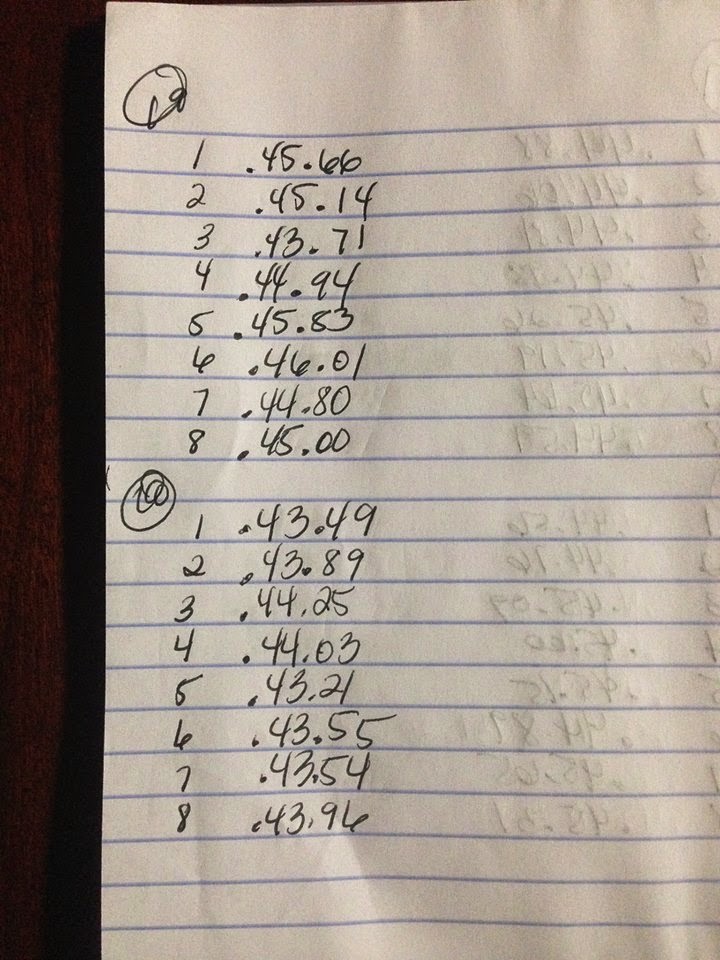 1 .45.66
2 .45.14
3 .43.71
4 .44.94
5 .45.83
6 .46.01
7 .44.80
8 .45.00
1 .43.49
2 .43.89
3 .44.25
4 .44.03
5 .43.21
6 .43.55
7 .43.54
8 .43.96